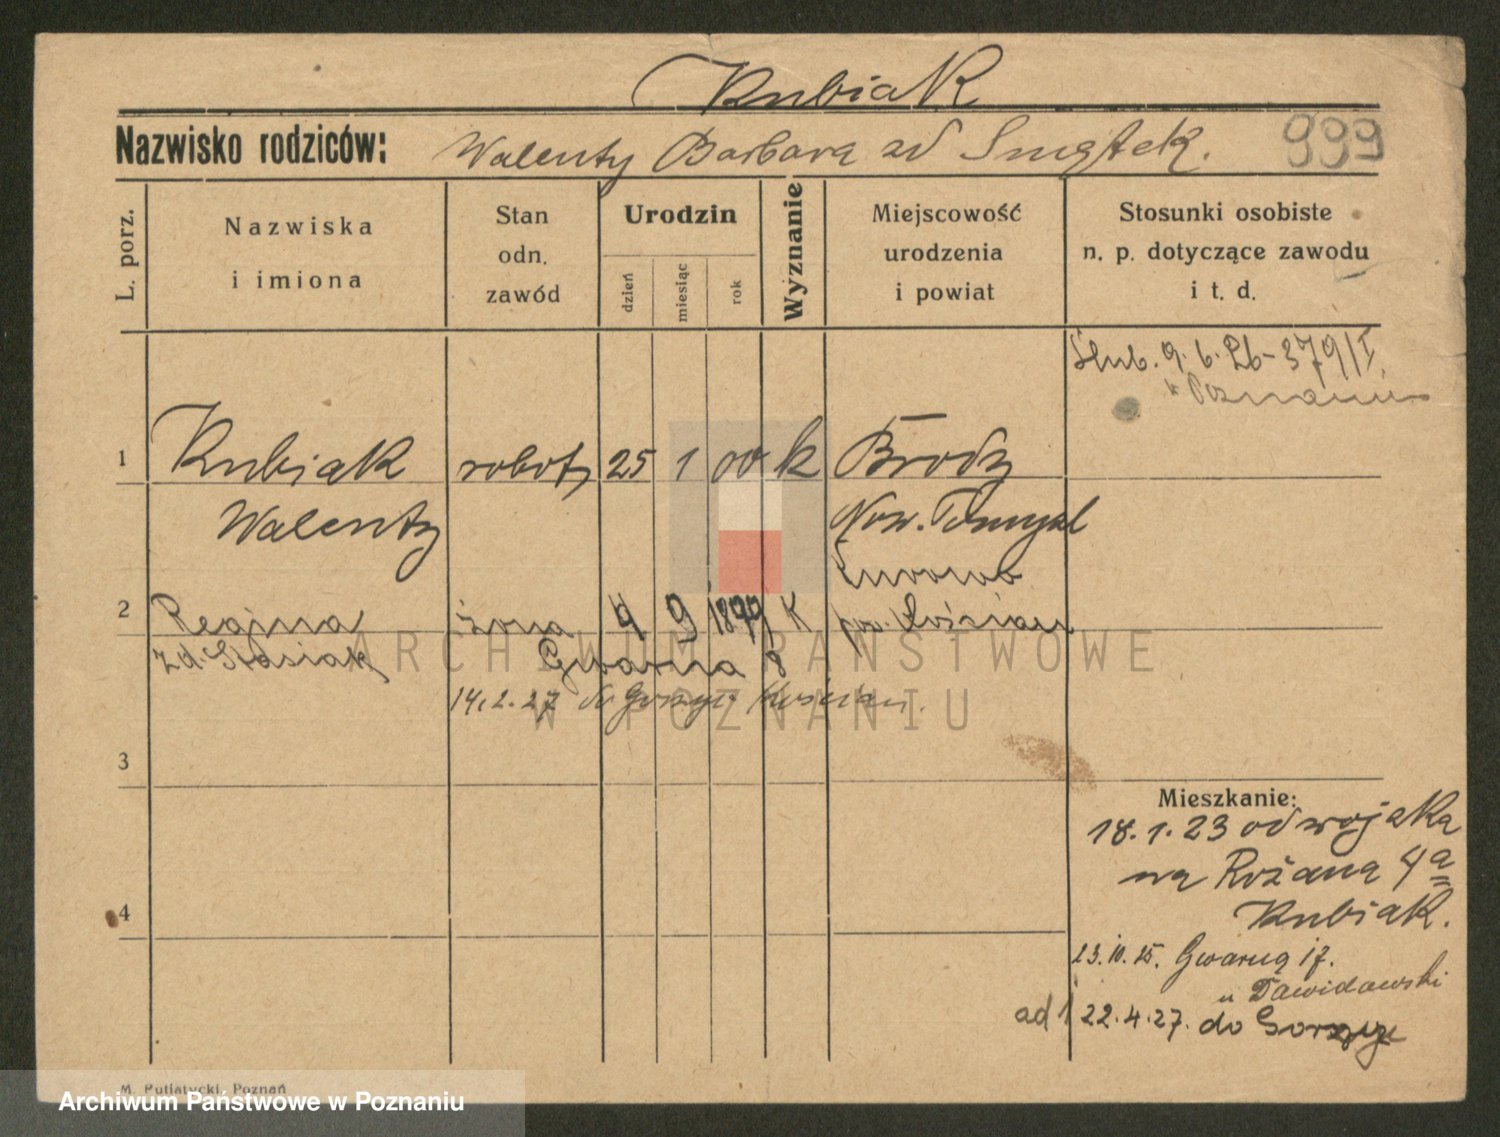 Kubiak
Nazwisko rodziców: Walenty Barbara zd Smętek.
999
L. porz.
Nazwiska i imiona
Stan odn. zawód
Urodzin
dzień
miesiąc
rok
Wyznanie
Miejscowość urodzenia i powiat
Stosunki osobiste n. p. dotyczące zawodu i t. d.
Ślub. 9.6.26-379/I
w Poznaniu
1 Kubiak robotn 25 1 00 k Brody
Walenty Now. Tomyśl
2 Regina żona 4 9 1899 K pow. Kościan
zd. Stasiak Gwarna 8
14.2.27 do Kościan.
3
Mieszkanie:
18.1.23 od wojska
na Różana 4a
Kubiak.
4
23.10.25. Gwarna 17.
u Dawidowski
ad 1 22.4.27. do
M. Putiatycki, Poznań
ARCHIWUM PAŃSTWOWE
W POZNANIU
Archiwum Państwowe w Poznaniu